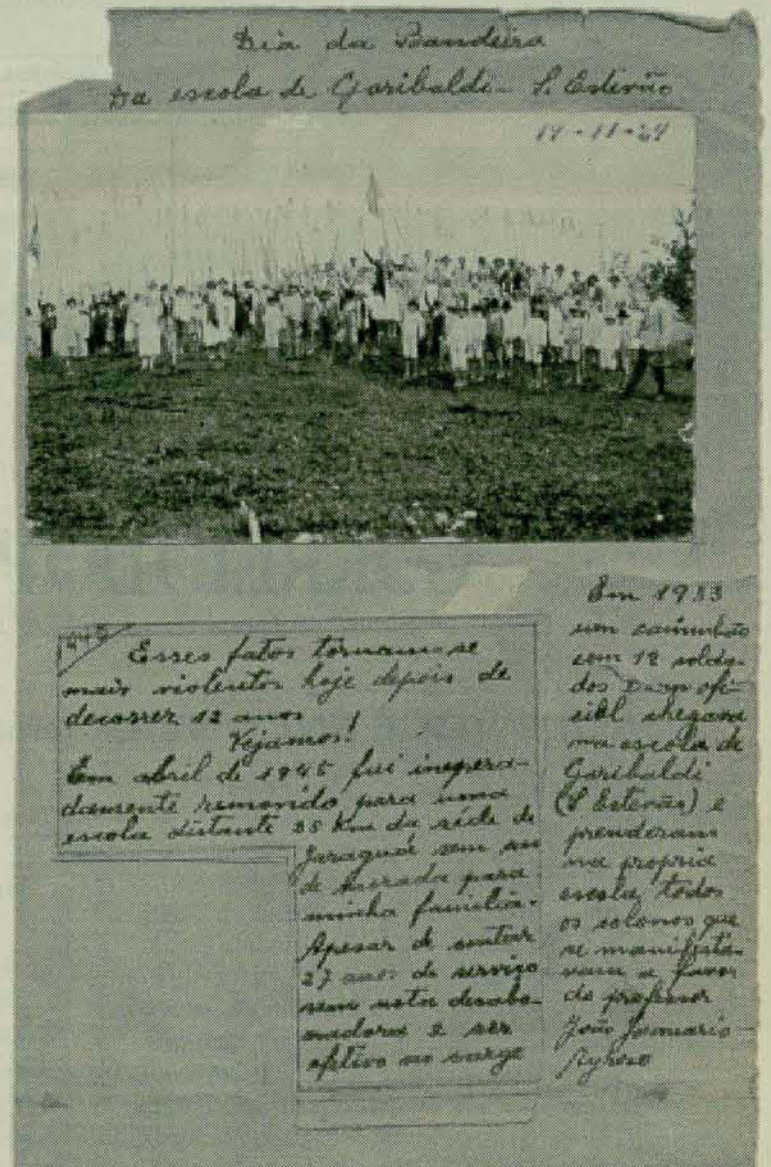 Dia da Bandeira
Na escola de Garibaldi - S. Estevão
19-11-29
Esses fatos tornam-se
mais violentos hoje depois de
decorrer 12 anos
Vejamos!
Em abril de 1945 fui inespera-
damente removido para uma
escola distante 25 Km da séde de
Jaraguá sem
de morada para
minha familia.
Apesar de contar
27 anos de serviço
sem nota desabo-
nadora e ser
efetivo no cargo
Em 1933
um caminhão
com 12 solda-
dos ofi-
cial chegaram
na escola de
Garibaldi
(S Estevão) e
prenderam
na propria
escola, todos
os colonos que
se manifesta-
vam a favor
do professor
João Januario